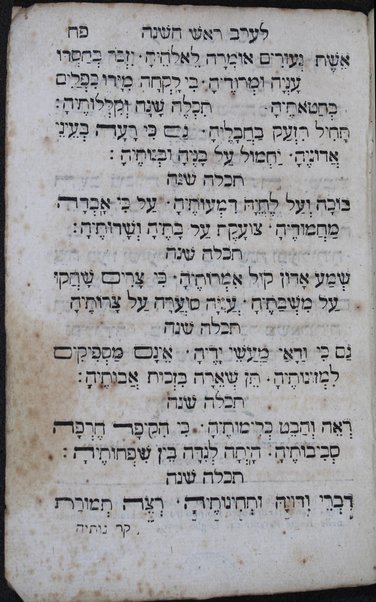 לערב ראש השנה פח
אֵשֶׁת נְעוּרִים אוֹמְרָה לֵאלֹהֶיהָ׃ וַיִּזְכֹּר בְּחַסְדּוֹ
עָנְיָהּ וּמְרוּדֶיהָ׃ כִּי לָקְחָה מִיָּדוֹ כִּפְלַיִם
בְּחַטֹּאתֶיהָ׃ תִּכְלֶה שָׁנָה וְקִלְלוֹתֶיהָ׃
תָּחִיל תִּזְעַק בַּחֲבָלֶיהָ׃ גַם כִּי רָעָה בְּעֵינֵי
אֲדוֹנֶיהָ׃ יַחְמוֹל עַל בָּנֶיהָ וּבְנוֹתֶיהָ׃
תכלה שנה
בּוֹכָה וְעַל לֶחֱיָהּ דִּמְעוֹתֶיהָ׃ עַל כִּי אָבְדָה
מַחֲמוּדֶיהָ׃ צוֹעֶקֶת עַל בָּתֶּיהָ וְשָׂדוֹתֶיהָ׃
תכלה שנה
שְׁמַע אָדוֹן קוֹל אִמְרוֹתֶיהָ׃ כִּי צָרִים שָׂחֲקוּ
עַל מִשְׁבַּתֶּיהָ׃ עֲנִיָּה סוֹעֲרָה עַל צָרוֹתֶיהָ
תכלה שנה
גַם כִּי וַדַּאי מַעֲשֵׂי יָדֶיהָ׃ אֵינָם מַסְפִּיקִים
לִמְזוֹנוֹתֶיהָ׃ תֵּן שְׁאֵרָהּ מִזְּכוּת אֲבוֹתֶיהָ׃
תכלה שנה
רְאֵה וְהַבֵּט כְּלִימוֹתֶיהָ׃ כִּי הִקִּיפָהּ חֶרְפָּה
סְבִיבוֹתֶיהָ׃ הָיְתָה לְנִדָּה בֵּין שִׁפְחוֹתֶיהָ׃
תכלה שנה
דִּבְרֵי וִדּוּיָהּ וּתְחִינוֹתֶיהָ׃ רְצֵה תְמוּרַת
קר נותיה